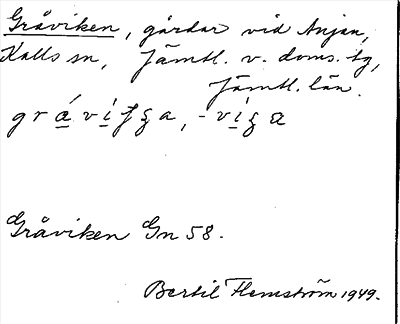 Gråviken, gårdar vid Anjan,
Kalls sn, Jämtl. v. doms. tg,
Jämtl. län.
Gråviken Gn 58.
Bertil Flemström 1949.